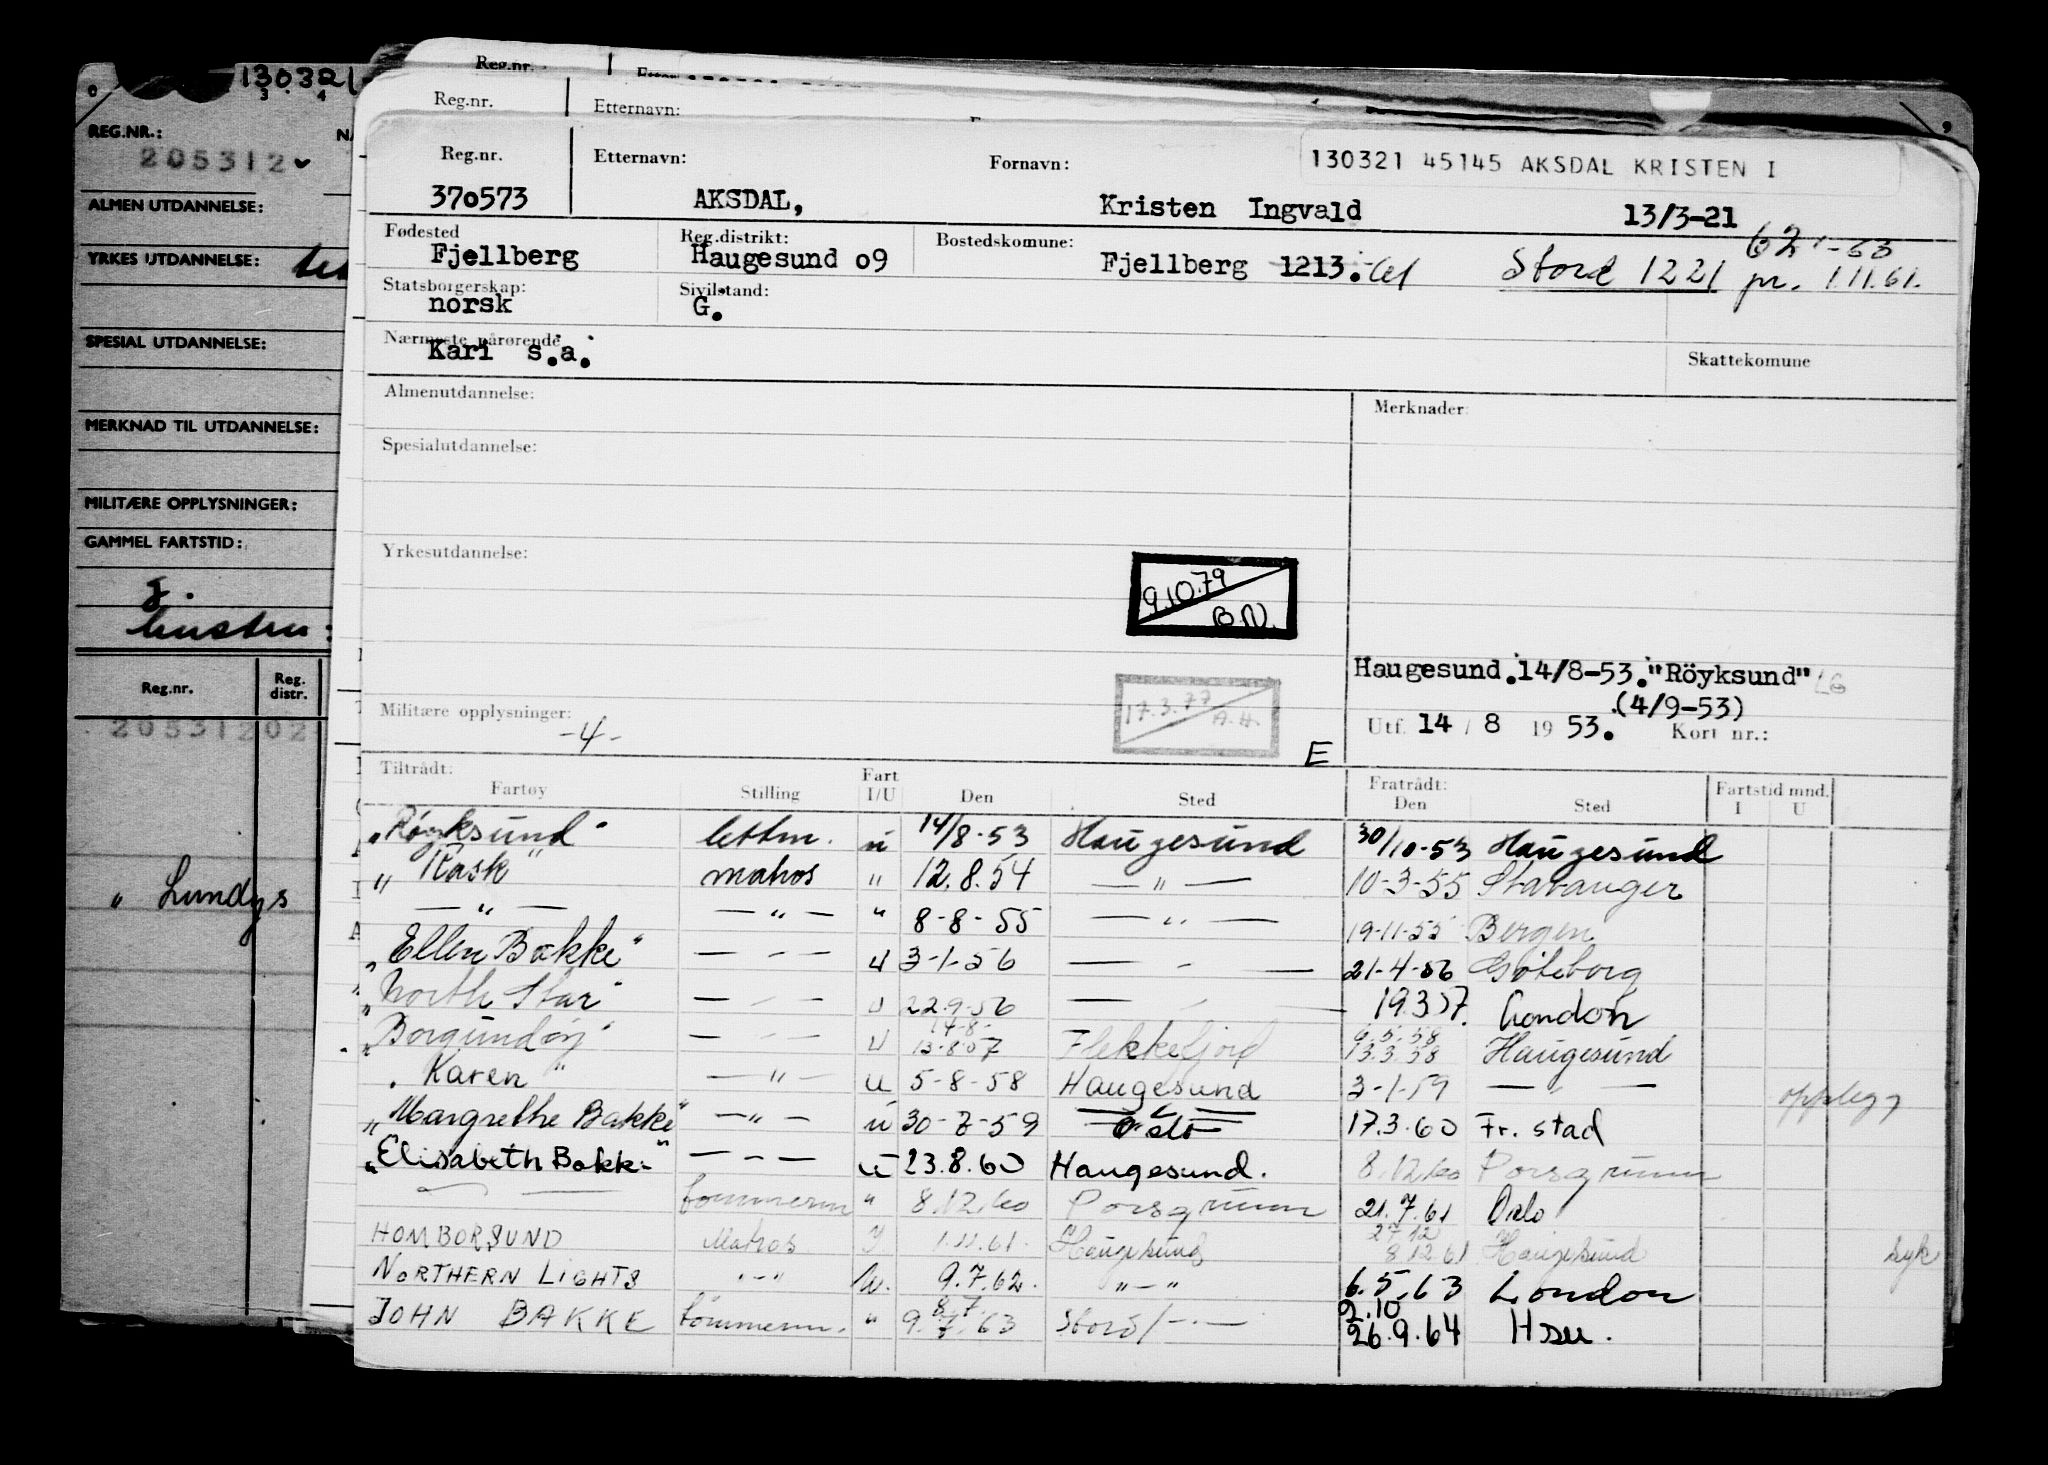 130321
3 4
REG.NR.:
205312
ALMEN UTDANNELSE:
YRKES UTDANNELSE:
SPESIAL UTDANNELSE:
MERKNAD TIL UTDANNELSE:
MILITÆRE OPPLYSNINGER:
GAMMEL FARTSTID:
Reg.nr. Reg. distr.
20531202
" Lundys
Reg.nr.
Reg.nr. Etternavn:
Reg.nr. Etternavn: Fornavn: 130321 45145 AKSDAL KRISTEN I
370573 AKSDAL, Kristen Ingvald 13/3-21
Fødested Reg.distrikt: Bostedskomune:
Fjellberg Haugesund o9 Fjellberg 1213. Stord 1221 pr. 1.11.61.
Statsborgerskap: Sivilstand:
norsk G.
Nærmeste pårørende Skattekomune
Kari s.a.
Almenutdannelse: Merknader:
Spesialutdannelse:
Yrkesutdannelse:
9.10.79
B.N.
Haugesund.14/8-53."Röyksund"
(4/9-53)
17.3.77
A.H.
Militære opplysninger: -4- Utf. 14 / 8 1953. Kort nr.:
E
Tiltrådt: Fart Fratrådt: Fartstid mnd.
Fartøy Stilling I/U Den Sted Den Sted I U
"Røyksund" lettm. u 14/8-53 Haugesund 30/10-53 Haugesund
" Rask" matros " 12.8.54 — " — 10-3-55 Stavanger
— " — — " — " 8-8-55 — " — 19-11-55 Bergen
"Ellen Bakke" — " — u 3-1-56 — " — 21-4-56 Göteborg
"North Star" — " — u 22.9.56 — " — 19.3.57. London
14-8- 6.5.58
"Borgundøy" — " — u 13-8-57 Flekkefjord 13.3.58 Haugesund
" Karen " — " — u 5-8-58 Haugesund 3-1-59 — " — opplegg
"Margrethe Bakke" — " — u 30-7-59 Oslo 17.3.60 Fr.stad
"Elisabeth Bakke" — " — u 23.8.60 Haugesund. 8.12.60 Porsgrunn
— " — tømmerm " 8.12.60 Porsgrunn 21.7.61 Oslo
27.12
HOMBORSUND Matros 1.11.61. Haugesund 8.12.61 Haugesund syk
NORTHERN LIGHTS "-" U. 9.7.62. "-" 6.5.63 London
8.7. 2.10
JOHN BAKKE tömmerm. " 9.7.63 Stord/-"- 26.9.64 Hsu.